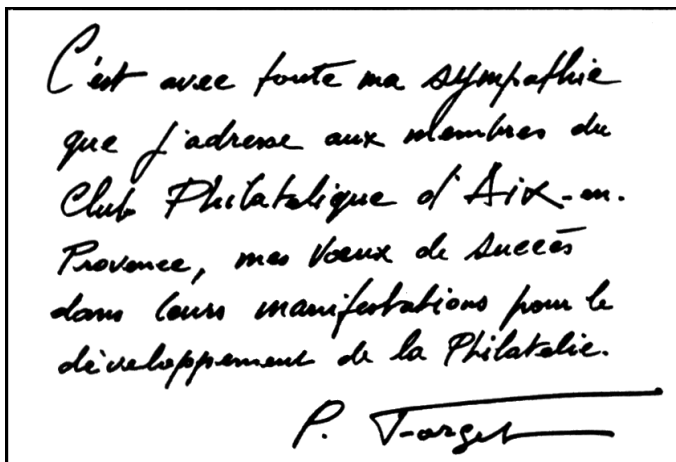 C'est avec toute ma sympathie
que j'adresse aux membres du
Club Philatélique d'Aix-en-
Provence, mes vœux de succès
dans leurs manifestations pour le
développement de la Philatélie.
P. Forget